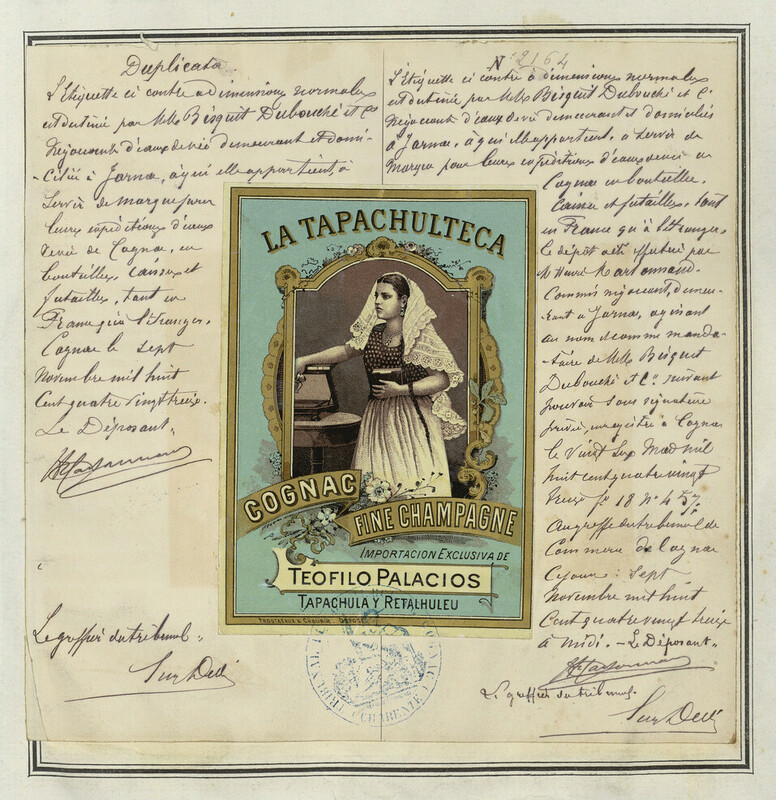 Duplicata
L'Etiquette ci contre a dimensions normales
est destinée par MM. Bisquit Dubouché et Cie
Négociants d'eaux de vie demeurant et domi-
-ciliés à Jarnac, à qui elle appartient, à
servir de marque pour
leurs expéditions d'eaux
de vie de Cognac, en
bouteilles, caisses et
futailles, tant en
France qu'à l'étranger.
Cognac le sept
Novembre mil huit
Cent quatre vingt treize.
Le Déposant,
Le greffier du tribunal.
LA TAPACHULTECA
COGNAC
FINE CHAMPAGNE
IMPORTACION EXCLUSIVA DE
TEOFILO PALACIOS
TAPACHULA Y RETALHULEU
N° 2164
L'étiquette ci contre à dimensions normales
est destinée par MM. Bisquit Dubouché et Cie
Négociants d'eaux de vie demeurant et domiciliés
à Jarnac, à qui elle appartient, à servir de
Marque pour leurs expéditions d'eaux de vie de
Cognac en bouteilles,
Caisses et futailles, tant
en France qu'à l'étranger.
Le dépôt a été effectué par
M. Henri
Commis négociant, demeu-
-rant à Jarnac, agissant
au nom et comme manda-
-taire de MM. Bisquit
Dubouché et Cie suivant
pouvoir sous signature
privée, enregistré à Cognac
le Vingt Six Mai mil
huit cent quatre vingt
treize fo 18 no 457.
Au greffe du tribunal de
Commerce de Cognac
Ce jour : Sept
Novembre mil huit
Cent quatre vingt treize
à midi. - Le Déposant,
Le greffier du tribunal.